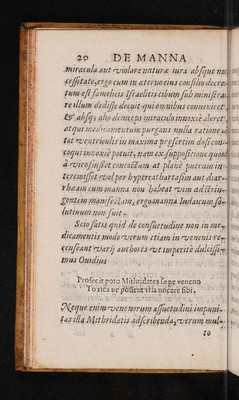 20 DE MANNA
miracula aut violare naturæ iura absque ne-
cessitate, ergo cum in æterno eius consilio decre-
tum est famelicis Israelitis cibum subministra-
re illum dedisse decuit qui omnibus conueniret,
& absque alio deinceps miraculo innoxiè aleret,
atqui medicamentum purgans nulla ratione à
tot ventriculis in maxima præsertim dosi con-
coqui innoxiè potuit, nam ex suppositione quod
à viro fuisset concoctum at planè puerum in-
teremisset vel per hypercathartasim aut diar-
rhæam cum manna non habeat vim adstrin-
gentem manifestam, ergo manna Iudæcum so-
lutiuum non fuit.
Scio satis quid de consuetudine non in me-
dicamentis modo verum etiam in venenis re-
censeant varij authores vt imperitè dulcissi-
mus Ouidius
Profecit poto Mithridates sæpe veneno
Toxica ne possent vlla nocere sibi.
Neque enim venenorum assuetudini impuni-
tas illa Mithridatis adscribenda, verum mul-
to